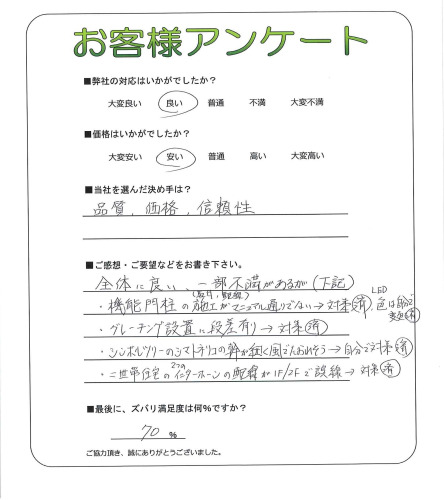 お客様アンケート
■弊社の対応はいかがでしたか？
大変良い 良い 普通 不満 大変不満
■価格はいかがでしたか？
大変安い 安い 普通 高い 大変高い
■当社を選んだ決め手は？
品質、価格、信頼性
■ご感想・ご要望などをお書き下さい。
全体に良い、一部不満があるが(下記)
・機能門柱の施工がマニュアル通りでない→対策済 LED色は自分で
・グレーチング設置に段差有り→対策済
・シンボルツリーのシマトネリコの幹が細く風でたおれそう→自分で対策済
・二世帯住宅の2つのインターホーンの配線が1F/2Fで誤線→対策済
■最後に、ズバリ満足度は何%ですか？
70 %
ご協力頂き、誠にありがとうございました。